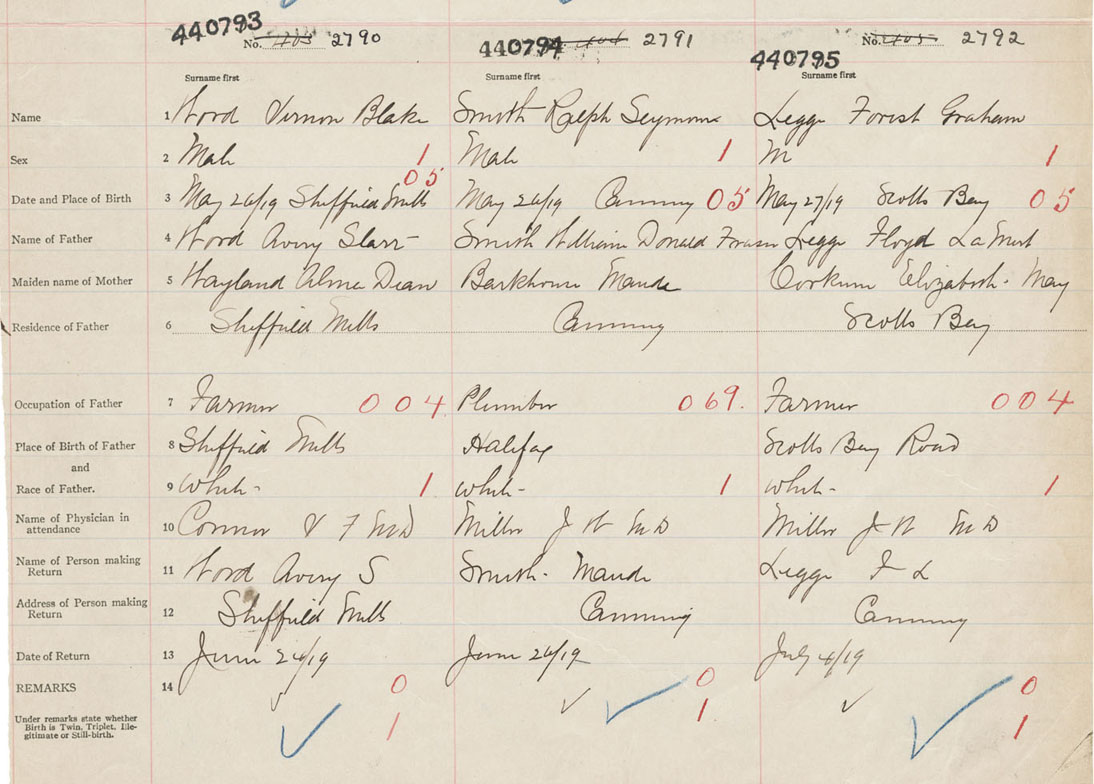 440793 No. 2790 440794 2791 440795 No. 2792
Surname first Surname first Surname first
Name 1 Word Vernon Blake Smith Ralph Seymour Legge Forest Graham
Sex 2 Male 1 Male 1 M 1
05
Date and Place of Birth 3 May 26/19 Sheffield Mills May 26/19 Canning 05 May 27/19 Scotts Bay 05
Name of Father 4 Word Avery Starr Smith William Donald Fraser Legge Floyd
Maiden name of Mother 5 Wayland Alma Dean Barkhouse Maude Corkum Elizabeth May
Residence of Father 6 Sheffield Mills Canning Scotts Bay
Occupation of Father 7 Farmer 004 Plumber 069. Farmer 004
Place of Birth of Father 8 Sheffield Mills Halifax Scotts Bay Road
and
Race of Father. 9 White 1 White 1 White 1
Name of Physician in
attendance 10 M D Miller J W M D Miller J W M D
Name of Person making
Return 11 Word Avery S Smith Maude Legge F L
Address of Person making
Return 12 Sheffield Mills Canning Canning
Date of Return 13 June 24/19 June 26/19 July 4/19
REMARKS 14 0 0 0
Under remarks state whether
Birth is Twin, Triplet, Ille-
gitimate or Still-birth. 1 1 1